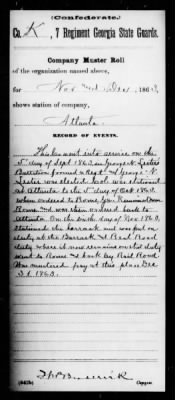 (Confederate.)
Co. K, 7 Regiment Georgia State Guards.
Company Muster Roll
of the organization named above,
for Nov and Dec, 1863.
shows station of company,
Atlanta.
RECORD OF EVENTS.
This Co went into service on the
5" day of Sept 1863 in George N. Lester's
Battalion formed a Regt & George N.
Lester was elected Col. was stationed
at Atlanta to the 5 day of Oct 1863
when ordered to Rome Ga. Remained at
Rome and was then ordered back to
Atlanta. On the day of Nov 1863
Stationed the barrack and was put on
duty at the Barrack & Rail Road
duty where it now remains on said duty
went to Rome & back by Rail Road.
Was mustered pay at this place Dec
31 1863.
Copyist.